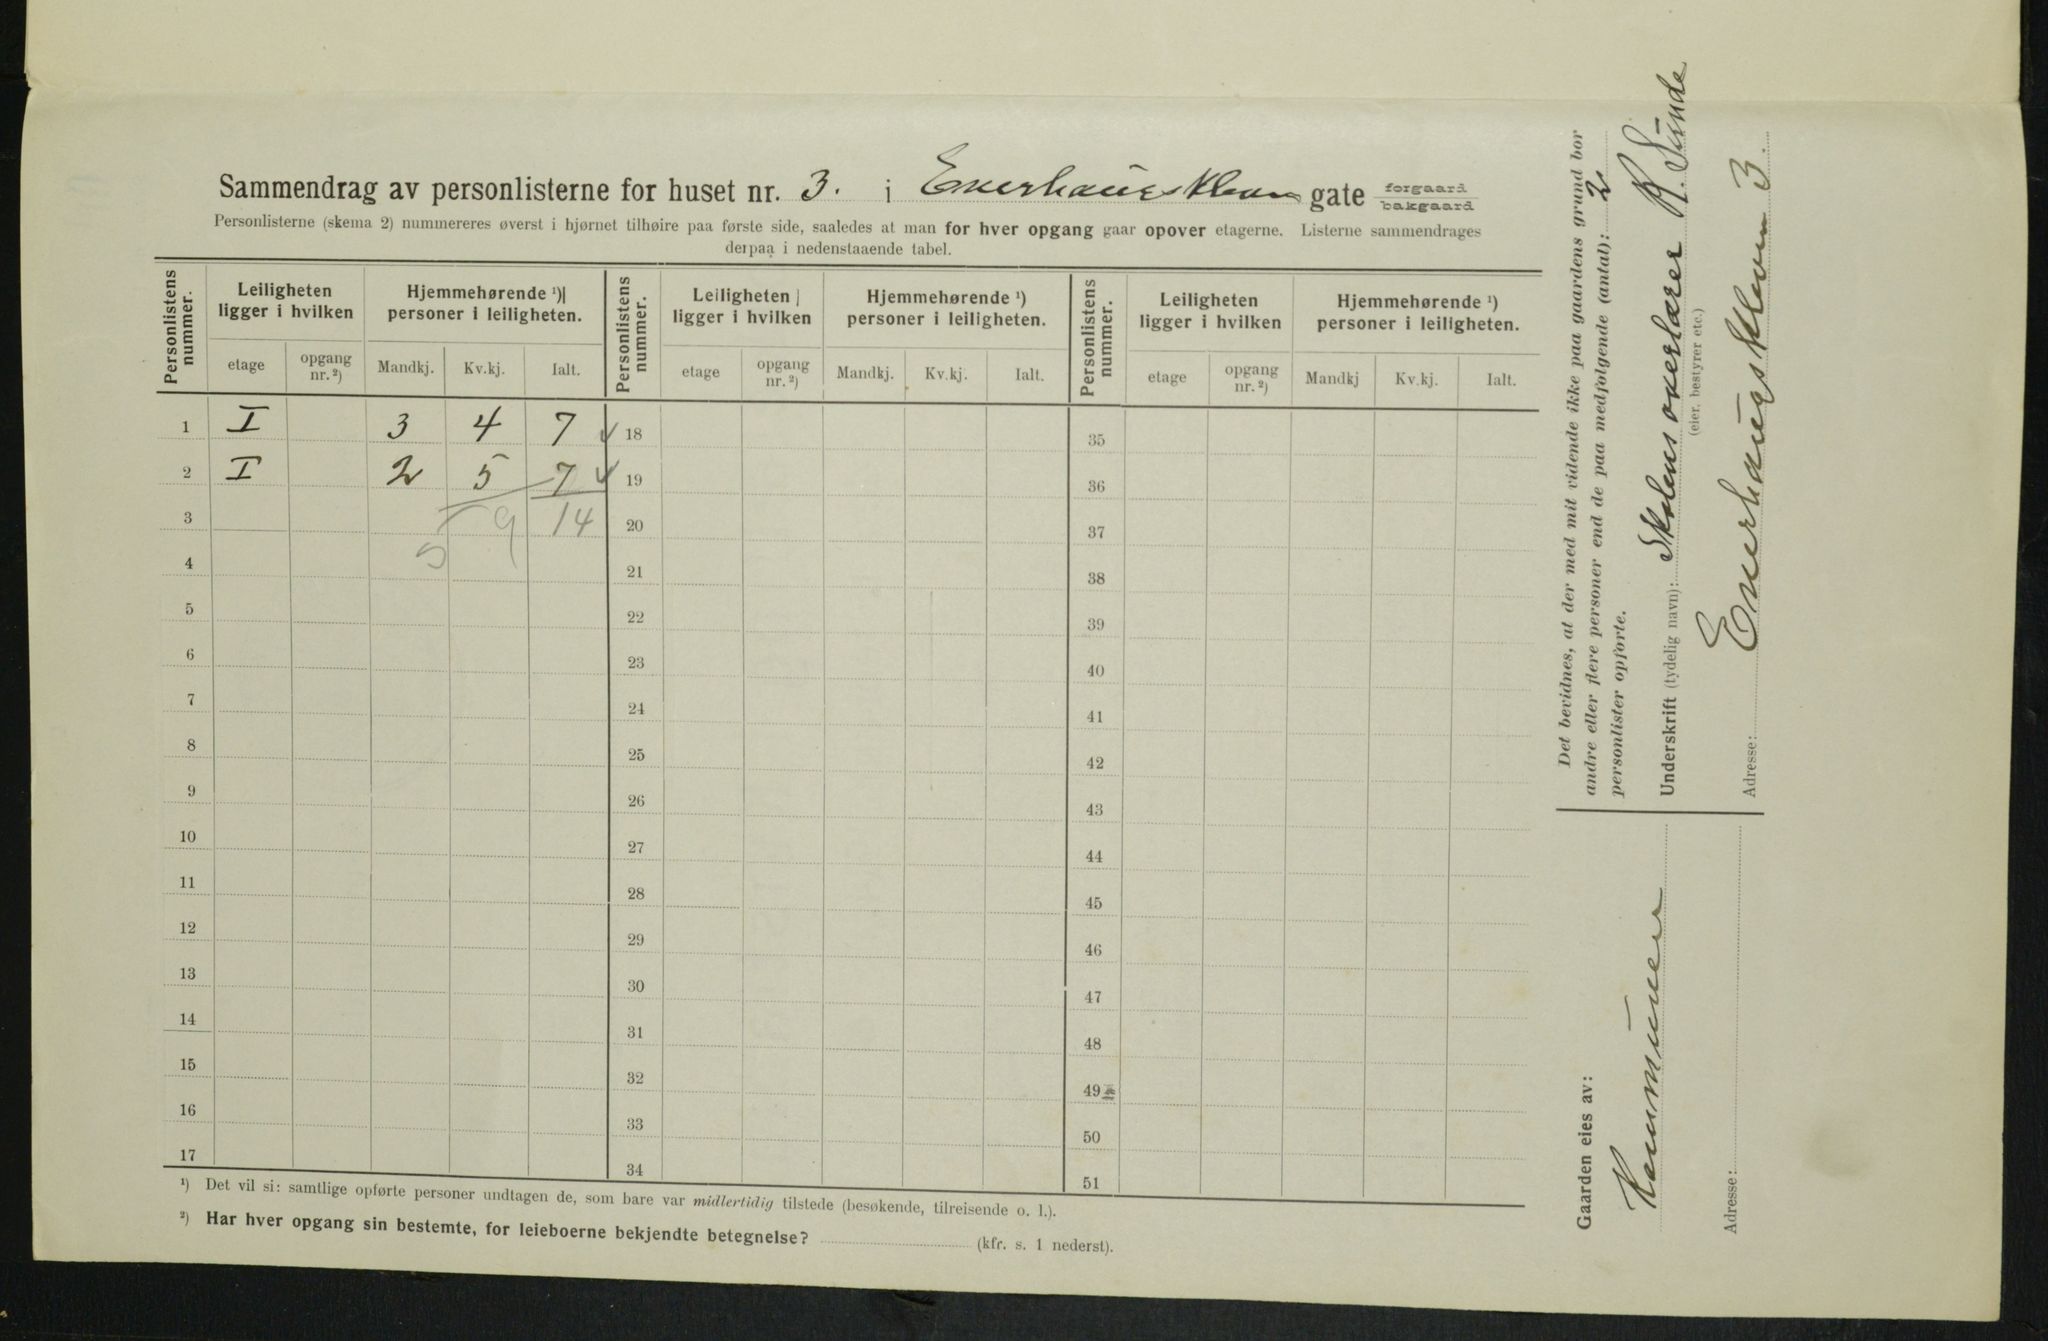 Sammendrag av personlisterne for huset nr. 3. i Enerhaugskleven gate forgaard bakgaard
Personlisterne (skema 2) nummereres øverst i hjørnet tilhøire paa første side, saaledes at man for hver opgang gaar opover etagerne. Listerne sammendrages
derpaa i nedenstaaende tabel.
Personlistens nummer. Leiligheten ligger i hvilken Hjemmehørende ¹) personer i leiligheten. Personlistens nummer. Leiligheten ligger i hvilken Hjemmehørende ¹) personer i leiligheten. Personlistens nummer. Leiligheten ligger i hvilken Hjemmehørende ¹) personer i leiligheten.
etage opgang nr. ²) Mandkj. Kv.kj. Ialt. etage opgang nr. ²) Mandkj. Kv.kj. Ialt. etage opgang nr. ²) Mandkj Kv.kj. Ialt.
1 I 3 4 7 ✓ 18 35
2 I 2 5 7 ✓ 19 36
3 5 9 14 20 37
4 21 38
5 22 39
6 23 40
7 24 41
8 25 42
9 26 43
10 27 44
11 28 45
12 29 46
13 30 47
14 31 48
15 32 49
16 33 50
17 34 51
¹) Det vil si: samtlige opførte personer undtagen de, som bare var midlertidig tilstede (besøkende, tilreisende o. l.).
²) Har hver opgang sin bestemte, for leieboerne bekjendte betegnelse? (kfr. s. 1 nederst).
Det bevidnes, at der med mit vidende ikke paa gaardens grund bor
andre eller flere personer end de paa medfølgende (antal): 2
personlister opførte.
Underskrift (tydelig navn): Skolens overlærer R. Sunde
(eier, bestyrer etc.)
Adresse: Enerhaugskleven 3.
Gaarden eies av:
Kommunen
Adresse: